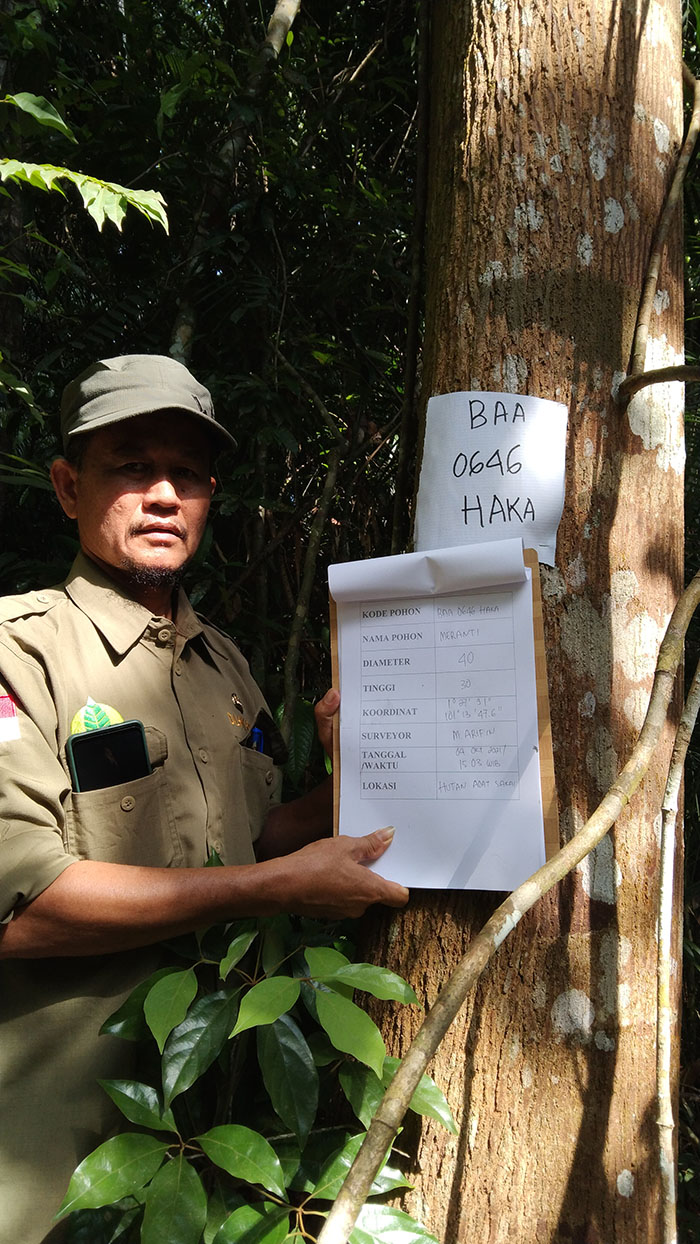 BAA
0646
HAKA
KODE POHON BAA 0646 HAKA
NAMA POHON MERANTI
DIAMETER 40
TINGGI 30
KOORDINAT
101° 13' 47.6"
SURVEYOR M. ARIFIN
TANGGAL 14 OKT
/WAKTU 15.03 WIB
LOKASI HUTAN ADAT SAKAI